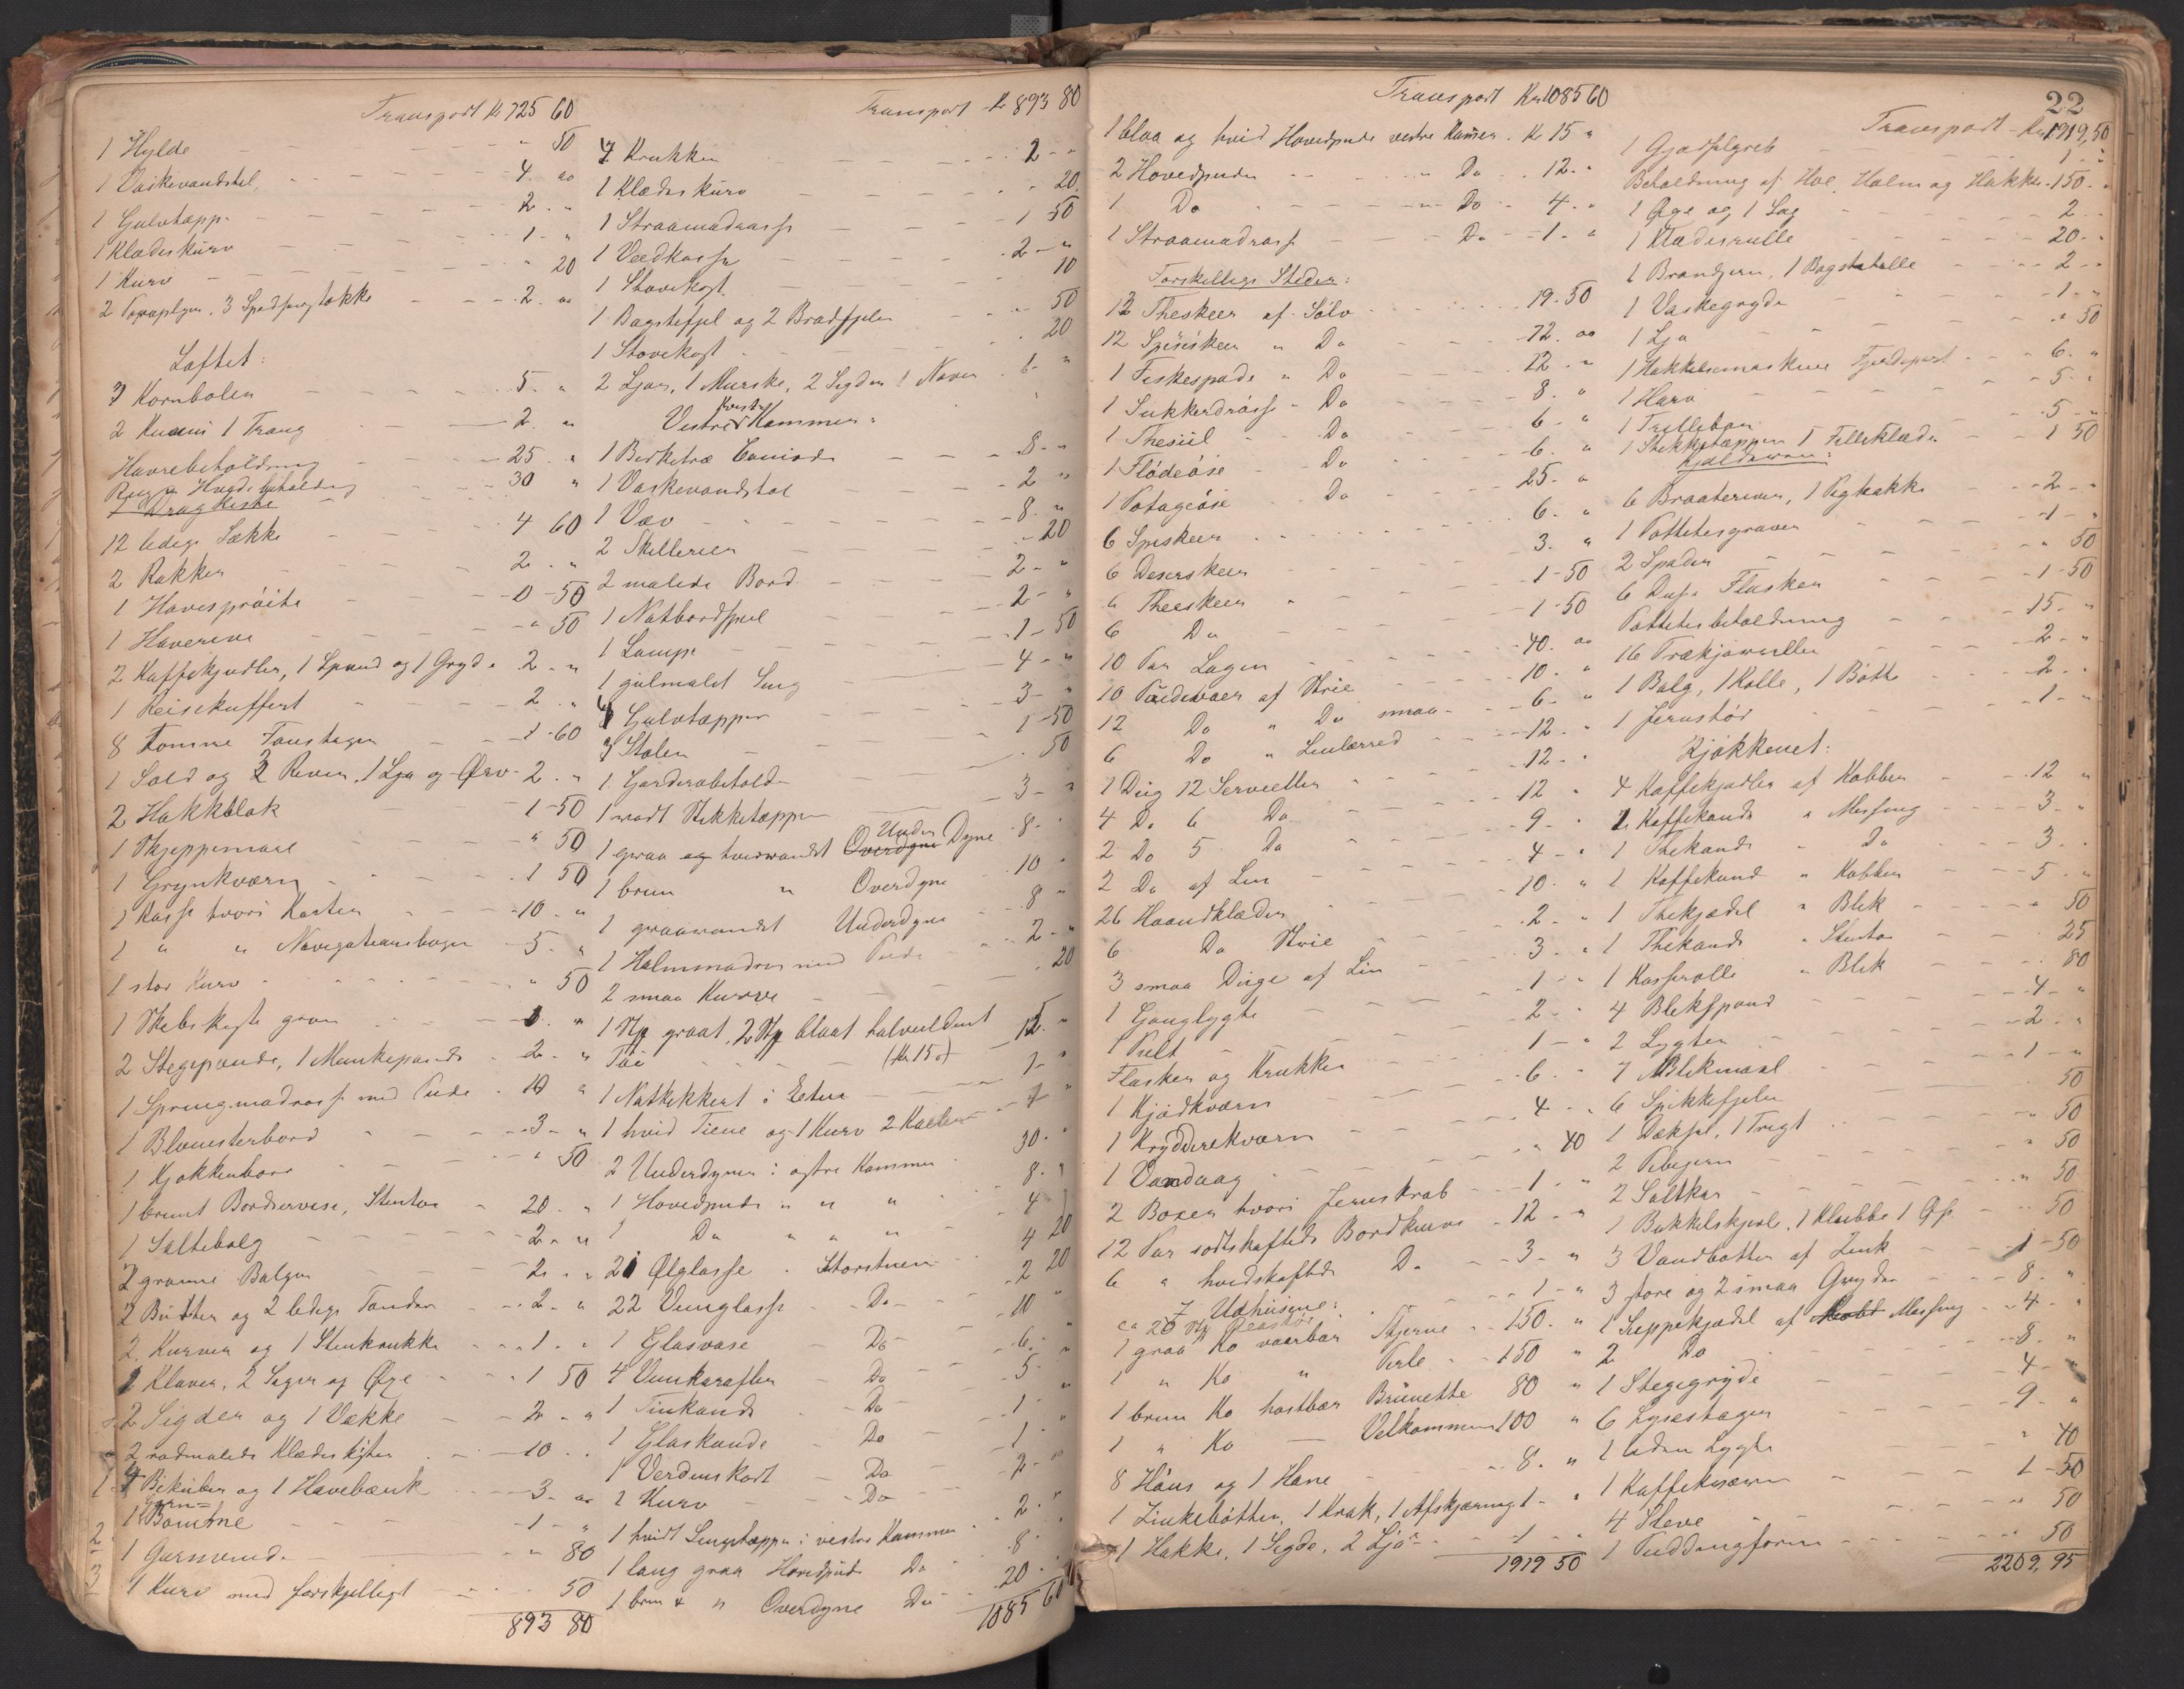 Transport Kr 725 60
1 Hylde - - - " 50
1 Vaskevandstel - - - 4. oo
1 Gulvtæppe - - - 2. "
1 Klædeskurv - - - 1. "
1 Kurv - - - " 20
2 Paraplyer, 3 Spadserstokke - - 2. oo
Loftet:
7 Kornbolen - - - 5. "
2 1 Traug - - 2. "
Havrebeholdning - - 25. "
Rug & Hvedebeholdning 30 "
1 Dragkiste
12 ledige Sække - - 4 60
2 Rokker - - - 2. "
1 Havesprøite - - 0-50
1 Haverive - - - " 50
2 Kaffekjedler, 1 Spand og 1 Gryde 2. "
1 Reisekuffert - - 2. "
8 tomme Foustager - - 1-60
1 Sold og 2 River, 1 Lja og Ørv - 2. "
2 Hakkblok - - 1-50
1 Skjeppemaal - - " 50
1 Grynkværn - - 1 50
1 Kasse hvori Karter - - 10. "
1 " " Navigationsbøger - 5. "
1 stor Kurv - - - " 50
1 Skibskiste grøn - - 1. "
2 Stegepande, 1 Munkepande - 2. "
1 Springmadrass med Pude - 10 "
1 Blomsterbord - - 3- "
1 Kjøkkenbord - - " 50
1 brunt Bordservise, Stentøi - 20. "
1 Saltebalg - - - 2. "
2 grønne Balger - - 2. "
2 Bøtter og 2 ledige Tønder - 2- "
2 Kurver og 1 Stenkrukke - 1. "
1 Klaver, 2 Sager og Øxe - 1 50
2 Sigder og 1 Vække - 2. "
2 rødmalede Klædeskister - 10. .
4 Bikuber og 1 Høvebænk - 3- oo
1 Garn=Bomme - - 1- "
1 Garnvinde - - " 80
1 Kurv med forskjelligt - 50
893 80
Transport Kr 893 80
7 Krukker - - 2 - "
1 Klædeskurv - - " 20
1 Straamadrass - - 1 50
1 Vedkasse - - 2- "
1 Stovekost - - 10
1 Bagstefjel og 2 Brødfjeler - 50
1 Stovekost - - 20
2 Ljaer, 1 Murske, 2 Sigder 1 Naver - 1- "
Vestre Kvist Kammer:
1 Birketræ Comode - - 8- "
1 Vaskevandstol - - 2 "
1 Væv - - 8. "
2 Skillerier - - 20
2 malede Bord - - 2- "
1 Natbordspeil - - 2- "
1 Lampe - - 1-50
1 gulmalet Seng - - 4- "
4 Gulvtæpper - - 3- "
3 Stoler - - 1-50
1 Garderobehold - - 50
1 vadt Stikketæppe - - 3- "
1 graa og hvervandt Overdyne Under Dyne 8- "
1 brun " Overdyne - 10 "
1 graavandet Underdyne - 8 "
1 Halmmadras med Pude - 2- "
2 smaa Kurve - - 20
1 Stk graat, 2 Stk blaat halvuldent
Tøi - - (Kr 15 ") - 15. "
1 Natkikkert i Etui - - 1- "
1 hvid Tiene og 1 Kurv 2 - 1 "
2 Underdyner i østre Kammer - 30. "
1 Hovedpude " " " 8. "
1 Do " " " 4 "
21 Ølglasse - Storstuen - 4 20
22 Vinglass - Do - 2 20
1 Glasvase - Do - 10 "
4 Vinkarafler - Do - 6. "
1 Tinkande - Do - 5- "
1 Glaskande - Do - 1- "
1 Verdenskort - Do - 1- "
1 Kurv - Do - 2- "
1 hvidt Sengetæppe i vestre Kammer - 2. "
1 lang graa Hovedpude Do - 8. "
1 brun & " Overdyne Do - 20 "
1085 60
Transport Kr 1085 60
1 blaa og hvid Hovedpude vestre Kamer. Kr 15 "
2 Hovedpuder - - Do - 12. "
1 Do - - Do - 4. "
1 Straamadrass - - Do - 1- "
Forskellige Steder:
13 Theskeer af Sölv - - 19.50
12 Spiseskeer " Do - - 72. oo
1 Fiskespade " Do - - 12. "
1 Sukkerdraasse - Do - - 8. "
1 Thesiil - Do - - 6. "
1 Flödeöse - Do - - 6. "
1 Potageöse - Do - - 25. "
6 Spiskeer - - 6. "
6 Desertskeer - - 3. "
6 Theeskeer - - 1-50
6 Do - - 1-50
10 Par Lagen - - 40. oo
10 Pudevaer af Strie - - 10. "
12 Do " Do smaa - - 6- "
6 Do " Linlærred - - 12- "
1 Dug 12 Servietter - - 12. "
4 Do 6 Do - - 12 "
2 Do 5 Do - - 9- "
2 Do af Lin - - 4- "
26 Haandklæder - - 10. "
6 Do Strie - - 2. "
3 smaa Duge af Lin - - 3. "
1 Ganglygte - - 1- "
1 Pult - - 2- "
Flasker og Krukker - - 1- "
1 Kjödkværn - - 6. "
1 Krydderikværn - - 4. "
1 - - " 40
2 Boxer hvori Jernskrab - - 1- "
12 Par sortskaftede Bordknive - 12. "
6 " hvidskaftede Do - 3- "
1- "
7 Udhusene:
ca 20
1 graa Ko vaarbær Stjerne - 150. "
1 " Ko " Perle - 150 "
1 brun Ko høstbær Brünette 80 "
1 " Ko — Velkommen 100 "
8 Höns og 1 Hane - 8. "
1 Zinkebötter, 1 Krak, 1 Afskjæring 1- "
1 Hakke, 1 Sigde, 2 Lja - 1- "
1919 50
22
Transport - Kr 1919,50
1 Gjødselgreb - - 1 - "
Beholdning af Hø, Halm og Hakkels 150. "
1 Øxe og 1 Sag - - 2 - "
1 Klædesrulle - - 20. "
1 Brandjern, 1 Bagstehelle - - 2 - "
1 Vaskegryde - - 1. "
1 Lja - - " 50
1 Hakkelsmaskine Fjerdepart - - 6. "
1 Harv - - 5. "
1 Trillebør - - 5- "
1 Stikketæppe 1 Filleklæde - - 1 50
Kjelderen:
6 , 1 - - 2 - "
1 Pottetesgraver - - 1- "
2 Spader - - " 50
6 Flasker - - 1-50
Pottetesbeholdning - - 15. "
16 - - 2- "
1 Balg, 1 Kolle, 1 Bötte - - 2. "
1 Jernstör - - 1- "
Kjökkenet:
4 Kaffekjedler af Kobber - - 12 "
1 Kaffekande " Messing - - 3. "
1 Thekande " Do - - 3. "
1 Kaffekande " Kobber - - 5. "
1 Thekjedel " Blik - - " 50
1 Thekande " Stentøi - - 25
1 Kasserolle " Blik - - 80
4 Blikspand - - 4- "
2 Lygter - - 2- "
7 Blikmaal - - 1- "
6 Spikkefjeler - - 50
1 Dæksel, 1 Tragt - - " 50
2 - - " 50
2 Saltkar - - " 50
1 , 1 Klubbe 1 - 50
3 Vandbøtter af Zink - - 1-50
3 store og 2 smaa Gryder - - 8. "
1 Suppekjedel af Messing - 4- "
2 Do - - 8. "
1 Stegegryde - - 4- "
6 Lysestager - - 9. "
1 liden Lygte - - " 40
1 Kaffekværn - - 1-50
4 Sleve - - " 50
1 Puddingform - - 50
2209,95